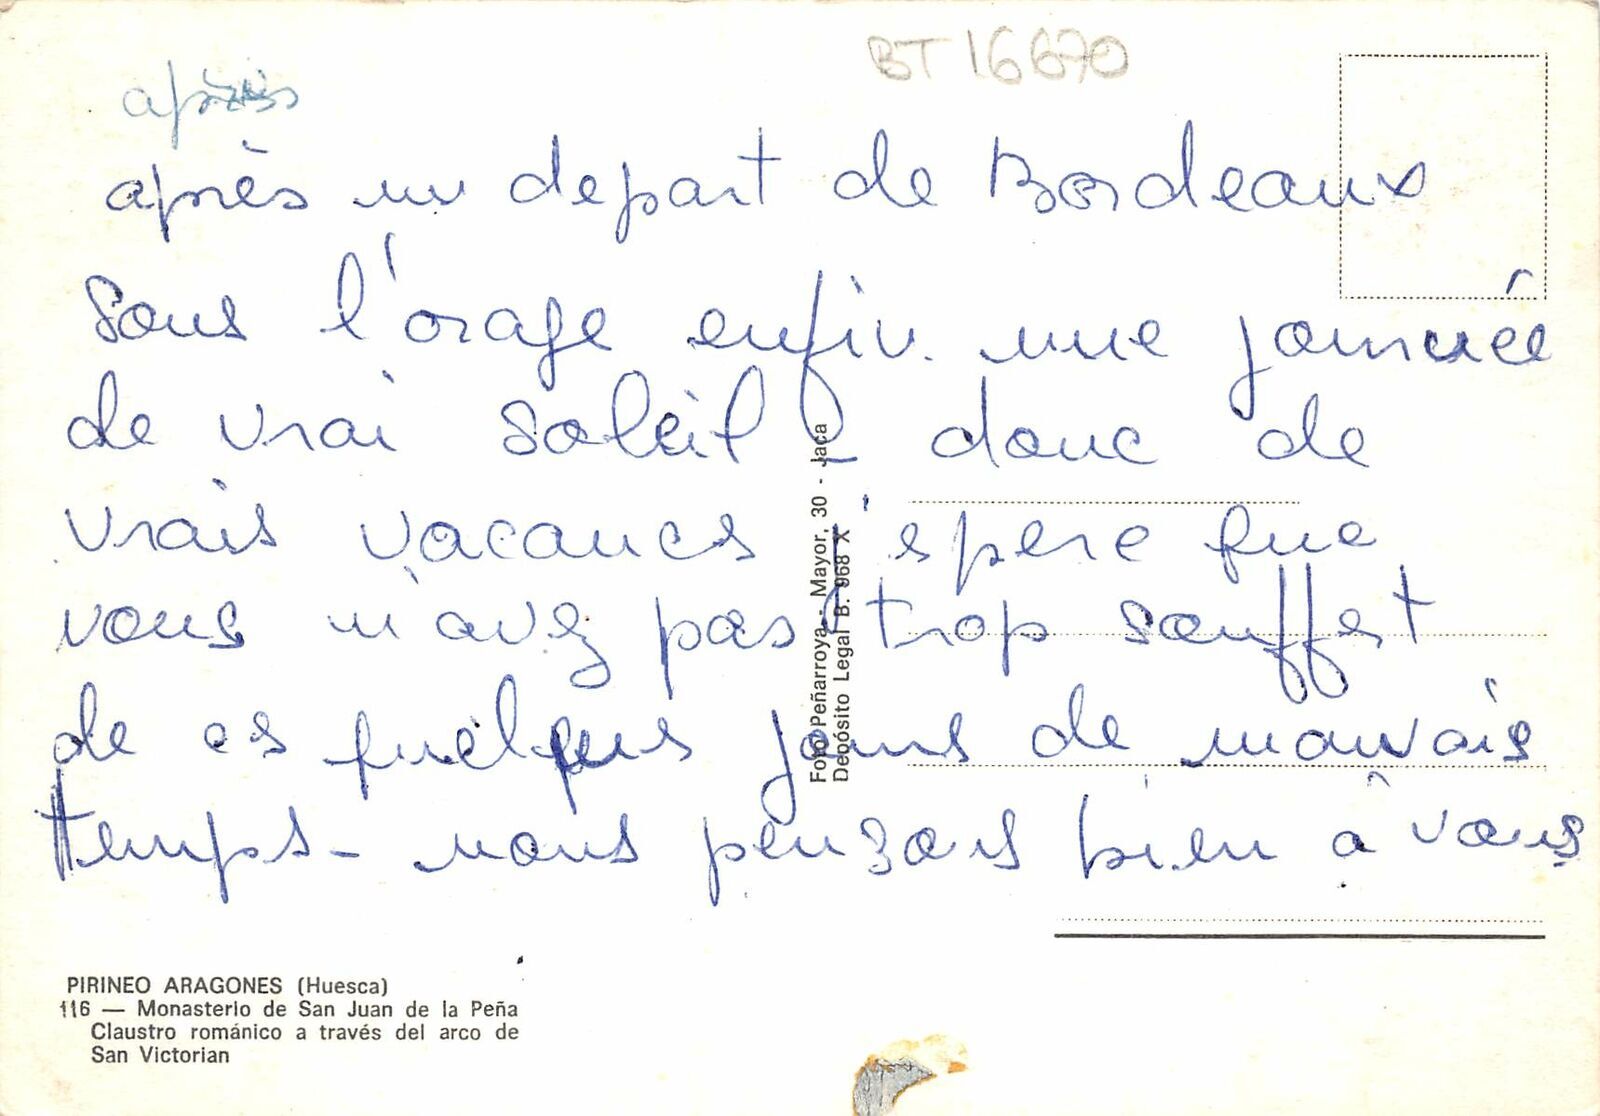 BT 16670
après
après un depart de Bordeaux
sous l'orage enfin une journée
de vrai soleil - donc de
vrais vacances j'espere que
vous n'avez pas trop souffert
de ces quelques jours de mauvais
temps - nous pensons bien à vous
Foto Peñarroya - Mayor, 30 - Jaca
Depósito Legal B. 968 X
PIRINEO ARAGONES (Huesca)
116 — Monasterio de San Juan de la Peña
Claustro románico a través del arco de
San Victorian